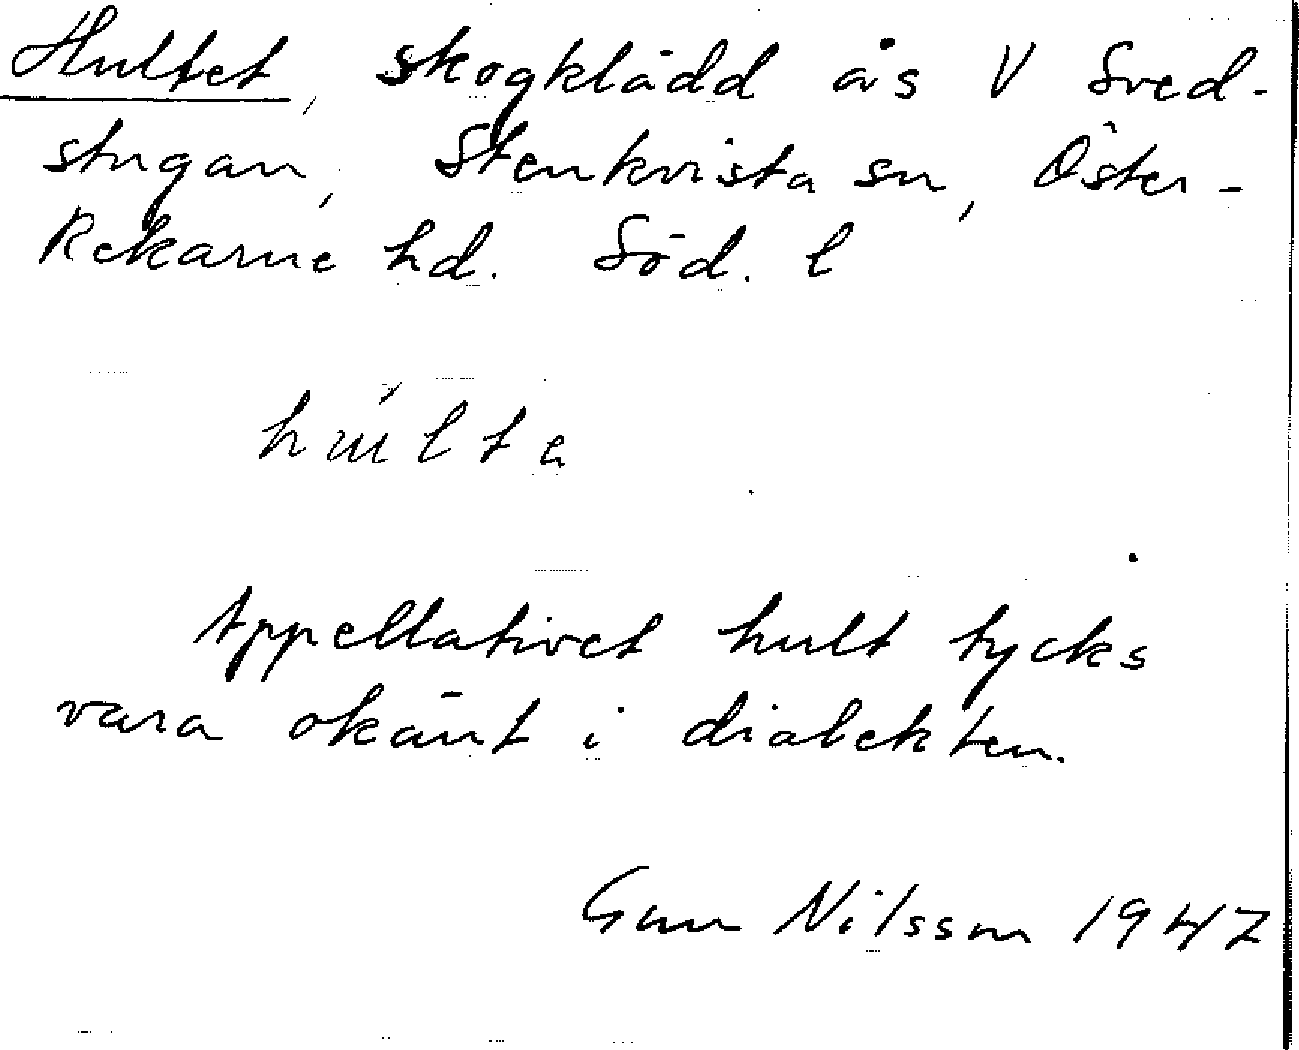 Hultet, skogklädd ås V Sved-
stugan, Stenkvista sn, Öster-
Rekarne hd. Söd. l
Appellativet hult tycks
vara okänt i dialekten.
Gun Nilsson 1947